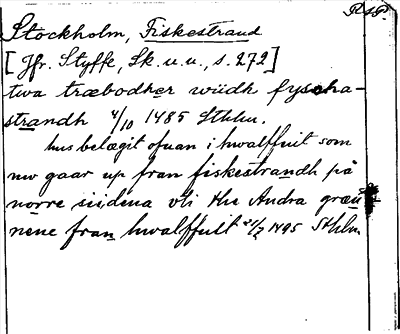 Stockholm, Fiskestrand
[Jfr. Styffe, Sk. u. u., s. 272]
twa træbodher widh fyscha-
strandh 4/10 1485 Sthlm.
hus belægit ofuan i hwalffuit som
nw gaar up fran fiskestrandh på
norre siidena vti the Andra græn
nene fran hwalffuit 21/2 1495 Sthlm